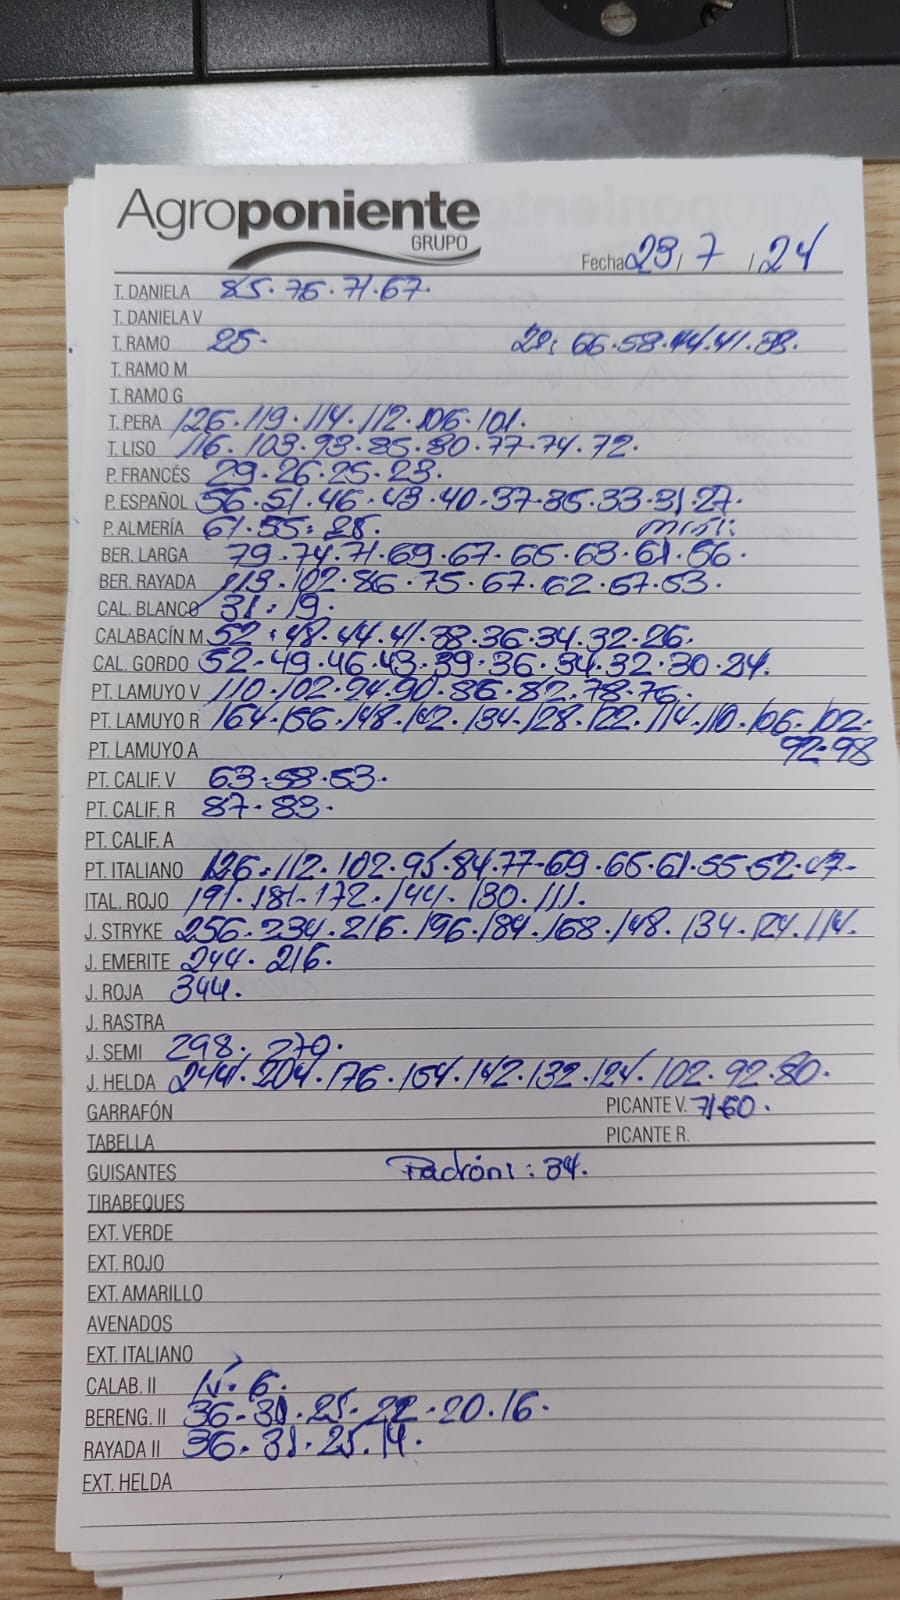 Agroponiente
GRUPO
Fecha 23 / 7 / 24
T. DANELA 85. 76. 71. 67.
T. DANIELA V
T. RAMO 25. 2ª: 66. 58. 44. 41. 38.
T. RAMO M
T. RAMO G
T. PERA 126. 119. 114. 112. 106. 101.
T. LISO 116. 103. 93. 85. 80. 77. 74. 72.
P. FRANCÉS 29. 26. 25. 23.
P. ESPAÑOL 56. 51. 46. 43. 40. 37. 35. 33. 31. 27.
P. ALMERÍA 61. 55: 28. mini:
BER. LARGA 79. 74. 71. 69. 67. 65. 63. 61. 56.
BER. RAYADA 113. 102. 86. 75. 67. 62. 57. 53.
CAL. BLANCO 31. 19.
CALABACÍN M 52: 48. 44. 41. 38. 36. 34. 32. 26.
CAL. GORDO 52. 49. 46. 43. 39. 36. 34. 32. 30. 24.
PT. LAMUYO V 110. 102. 94. 90. 86. 82. 78. 76.
PT. LAMUYO R 164. 156. 148. 142. 134. 128. 122. 114. 110. 106. 102.
PT. LAMUYO A 92. 98
PT. CALIF. V 63. 58. 53.
PT. CALIF. R 87. 83.
PT. CALIF. A
PT. ITALIANO 126. 112. 102. 95. 84. 77. 69. 65. 61. 55. 52. 47.
ITAL. ROJO 191. 181. 172. 144. 130. 111.
J. STRYKE 256. 234. 216. 196. 184. 168. 148. 134. 124. 114.
J. EMERITE 244. 216.
J. ROJA 344.
J. RASTRA
J. SEMI 298. 270.
J. HELDA 244. 204. 176. 154. 142. 132. 124. 102. 92. 80.
GARRAFÓN PICANTE V. 71. 60.
TABELLA PICANTE R.
GUISANTES Padrón: 34.
TIRABEQUES
EXT. VERDE
EXT. ROJO
EXT. AMARILLO
AVENADOS
EXT. ITALIANO
CALAB. II 15. 6.
BERENG. II 36. 31. 25. 22. 20. 16.
RAYADA II 36. 31. 25. 14.
EXT. HELDA